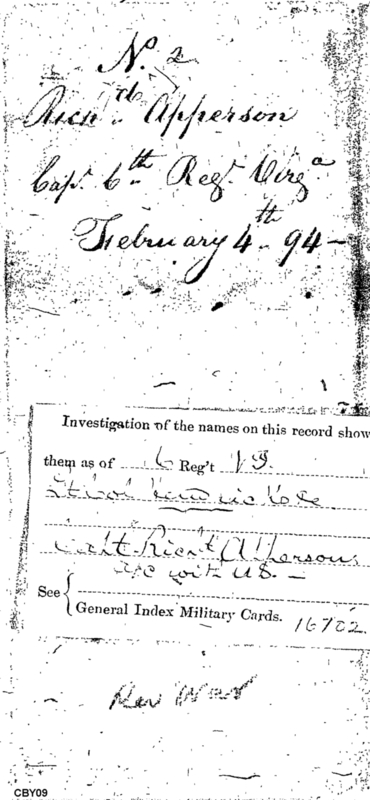 No. 2
Richd. Apperson
Capt. 6th Regt. Virga
February 4th 94 -
Investigation of the names on this record show
them as of 6 Reg't Va.
Capt. Rich'd Apperson.
a/c with U.S. -
See { General Index Military Cards. 16702.
Rev War
CBY09